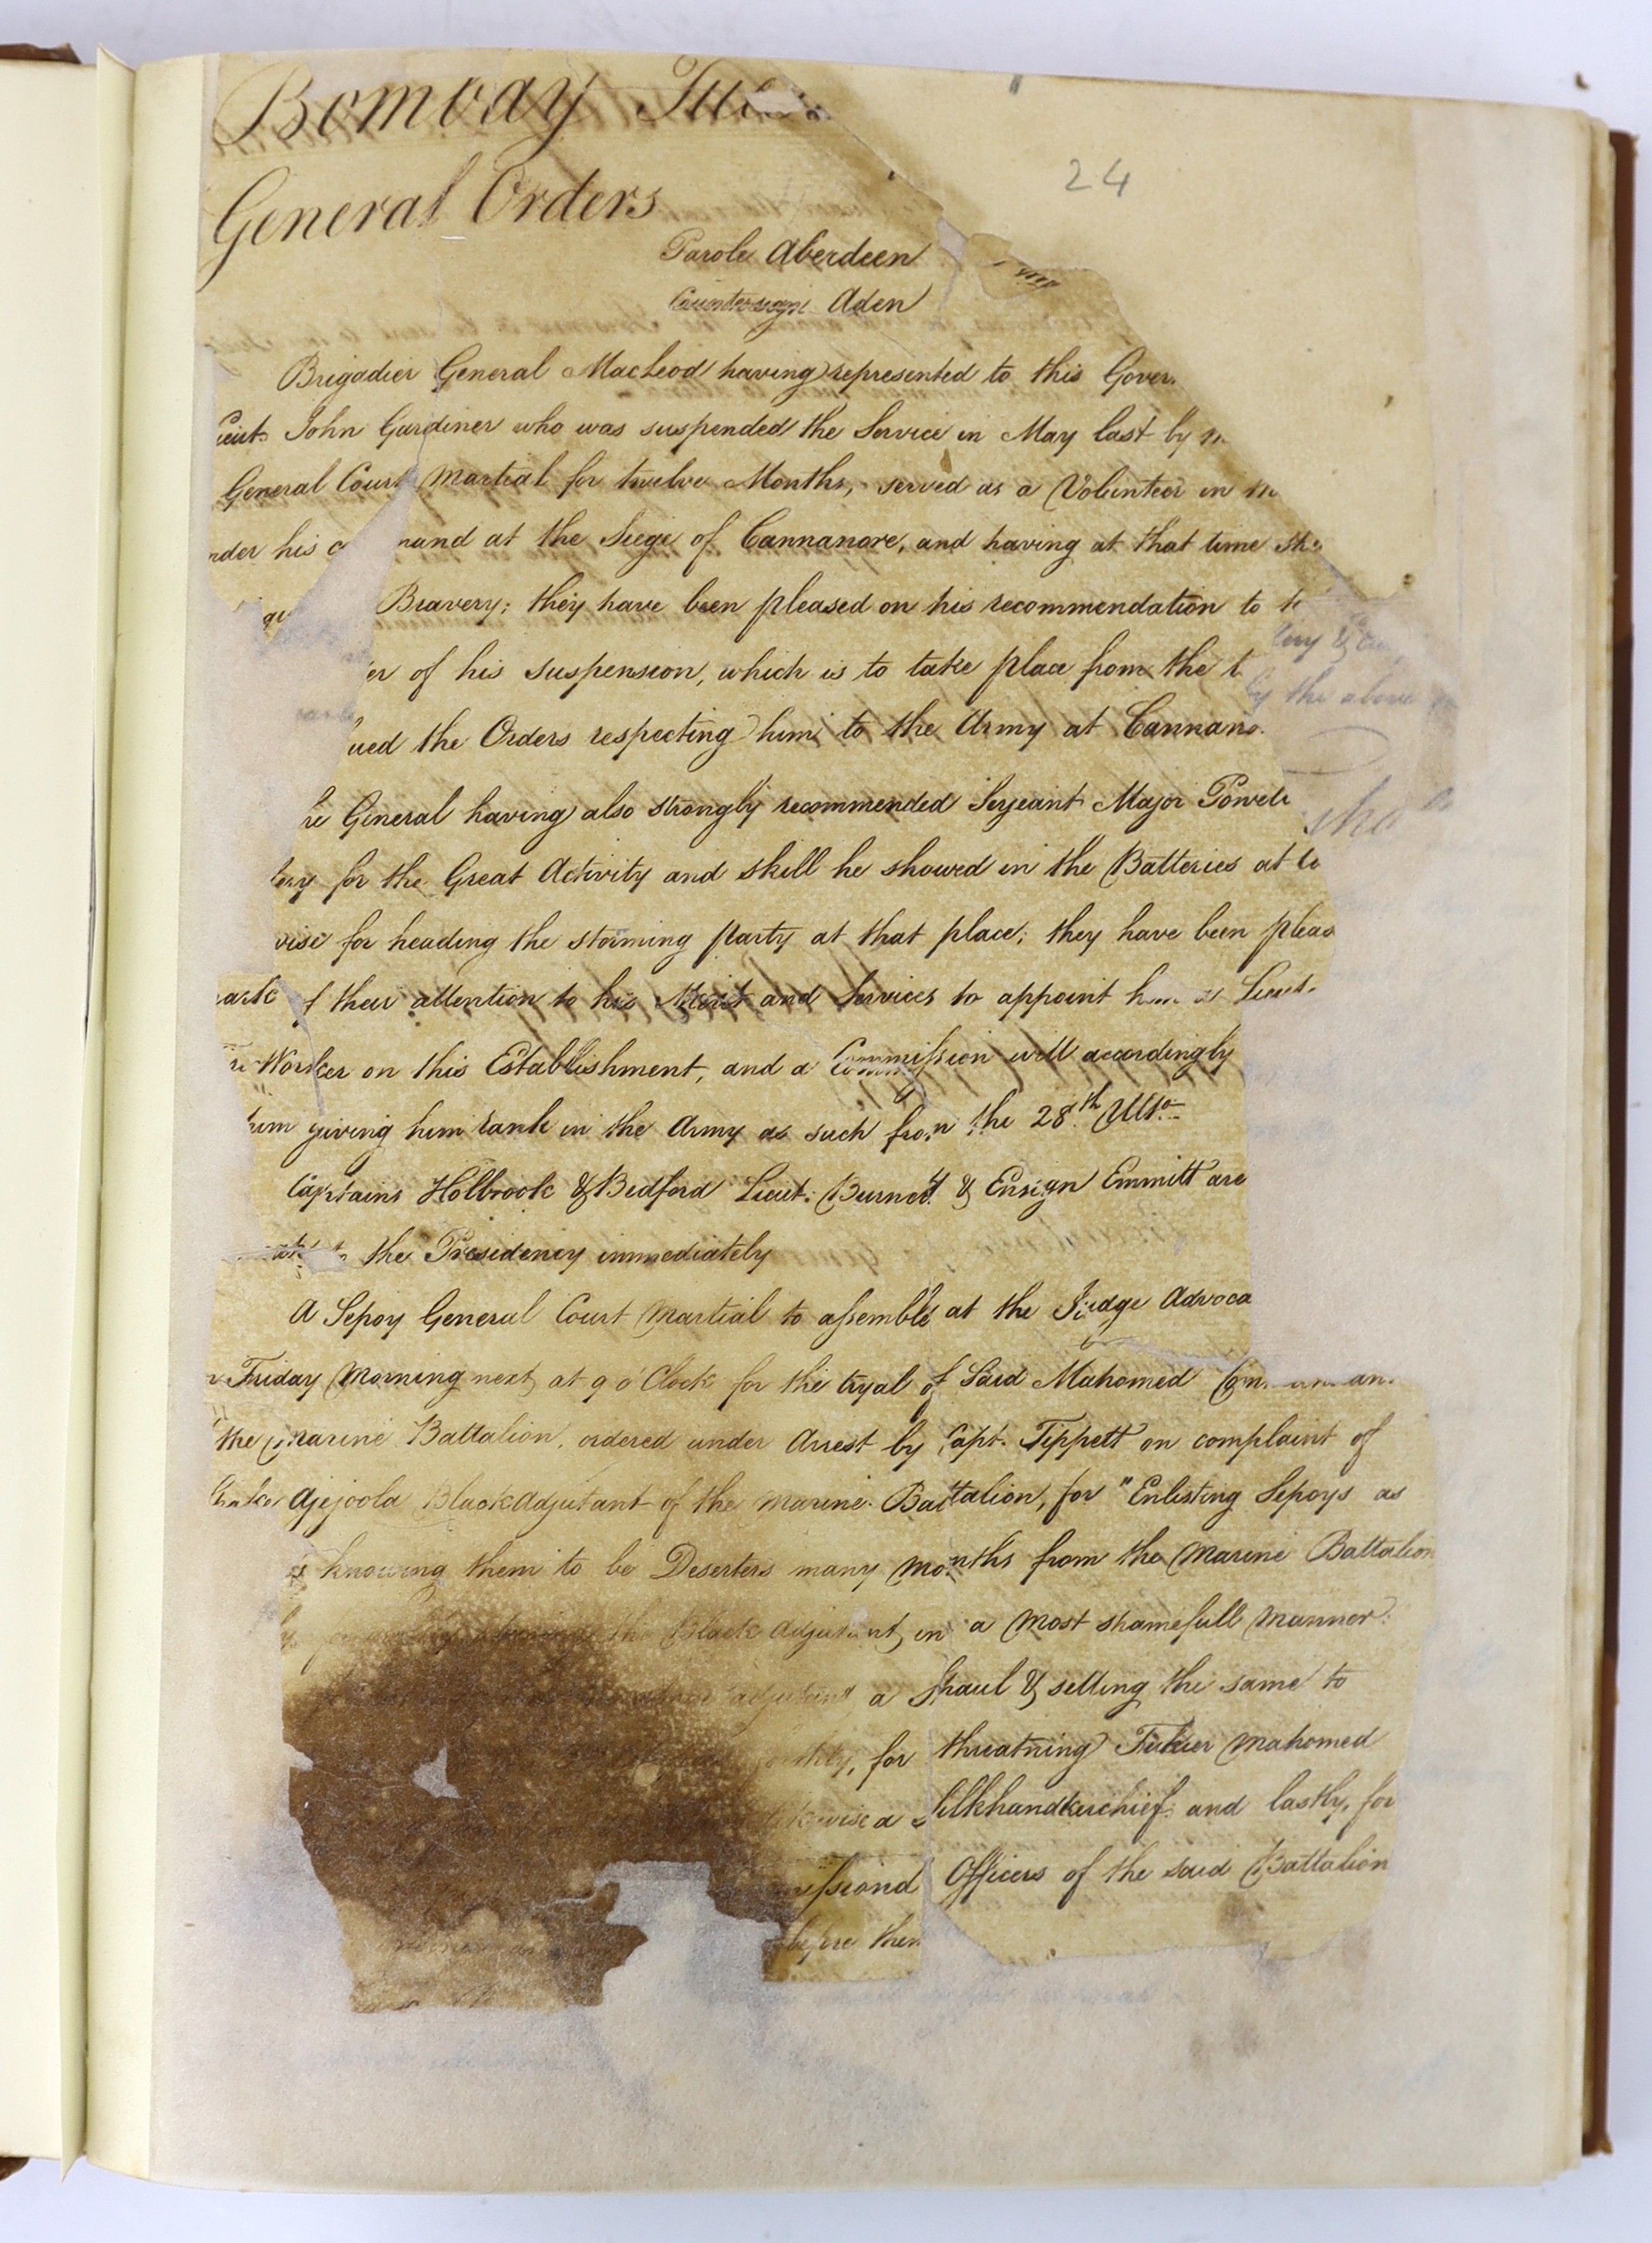 Bombay Tue
24
General Orders
Parole Aberdeen
Countersign Aden
Brigadier General MacLeod having represented to this Gover
Lieut. John Gardiner who was suspended the Service in May last by
General Court Martial for twelve Months, served as a Volunteer in
nder his co mand at the Siege of Cannanore, and having at that time sh
Bravery; they have been pleased on his recommendation to
er of his suspension, which is to take place from the t
ued the Orders respecting him to the Army at Cannano
General having also strongly recommended Serjeant Major Powel
lery for the Great Activity and skill he showed in the Batteries at
wise for heading the storming party at that place; they have been pleas
mark of their attention to his Merit and Services to appoint him as Lieut.
Worker on this Establishment, and a Commission will accordingly
him giving him rank in the Army as such from the 28th. Ulto.
Captains Holbrook & Bedford Lieut. Burnet & Ensign Emmitt are
the Presidency immediately
A Sepoy General Court Martial to assemble at the Judge Advoca
Friday Morning next at 9 o'Clock for the tryal of Said Mahomed
the Marine Battalion, ordered under Arrest by Capt. Tippett on complaint of
Ajejoola Black Adjutant of the Marine Battalion, for "Enlisting Sepoys as
knowing them to be Deserters many months from the Marine Battalion
the Black Adjutant, in a most shamefull manner.
adjutant a Shaul & selling the same to
for threatning Fukier Mahomed
likewise a Silkhandkerchief. and lastly, for
missiond Officers of the said Battalion
before them